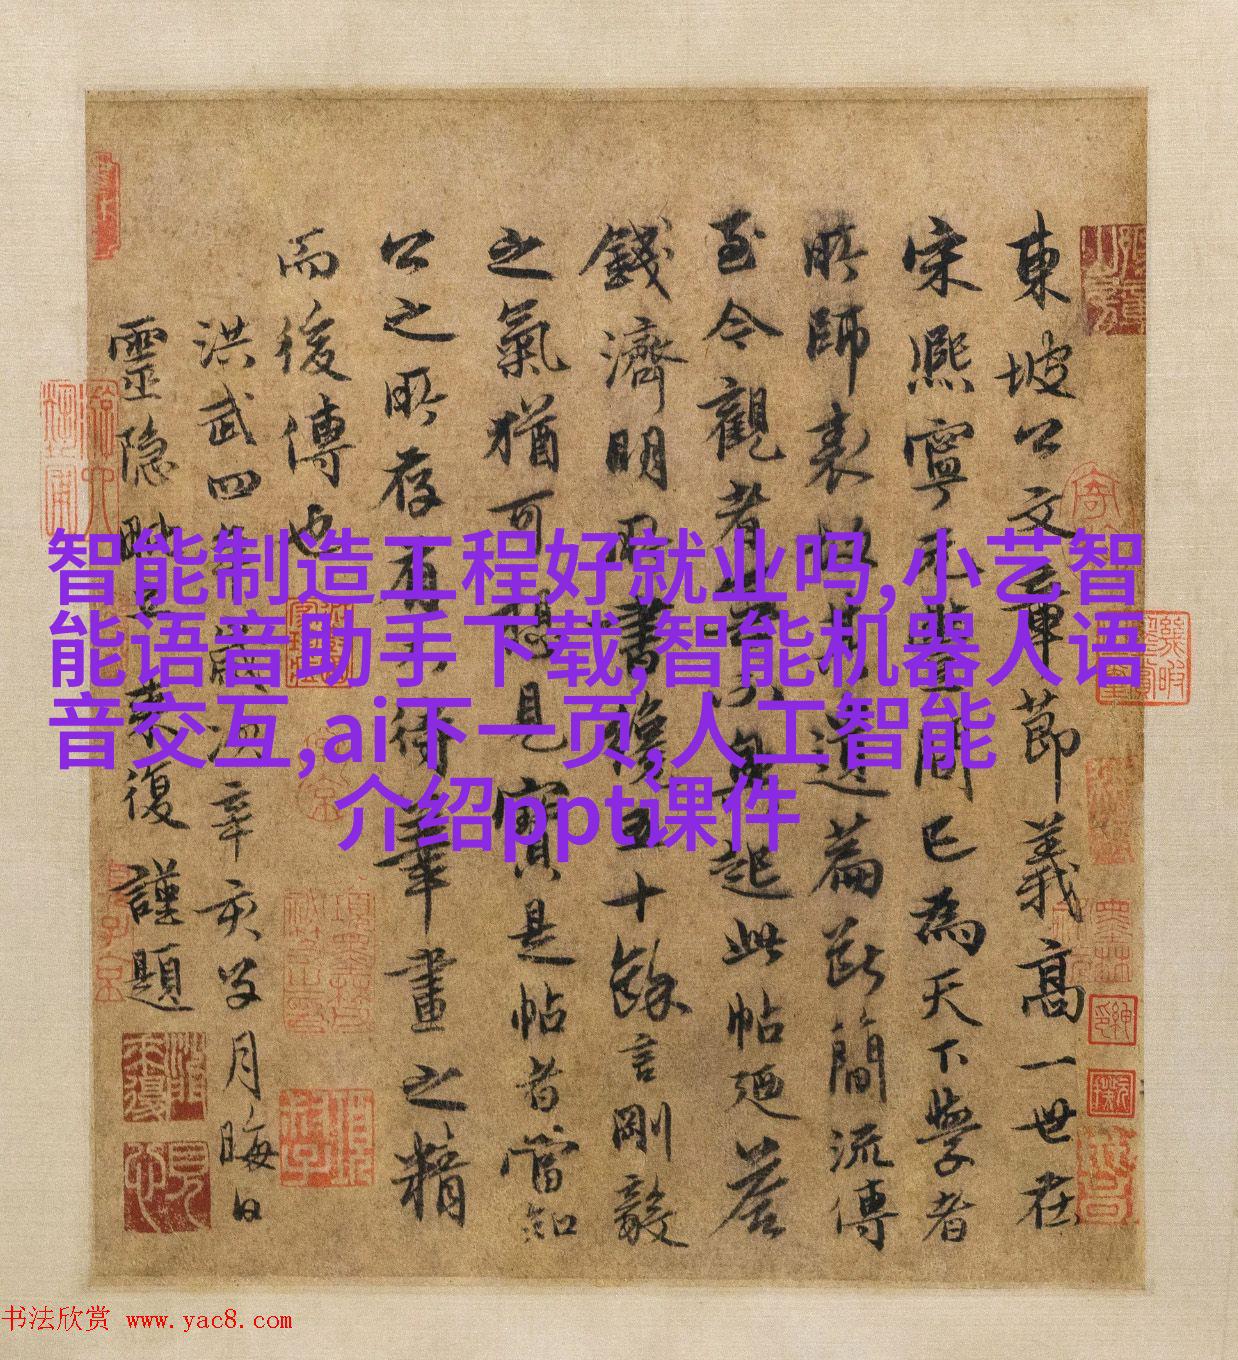 東坡公文章節義高一世在
宋熙寧元豐間已為天下學者
所師表故其遺篇斷簡流傳
至今觀者莫不興起此帖廼答
錢濟明書後五十餘言剛毅
之氣猶可想見寶是帖者當知
公之所存有不待筆畫之精
而後傳也
洪武四年歲次辛亥月晦日
靈隱來復謹題
智能制造工程好就业吗,小艺智
能语音助手下载,智能机器人语
音交互,ai下一页,人工智能
介绍ppt课件
书法欣赏 www.yac8.com